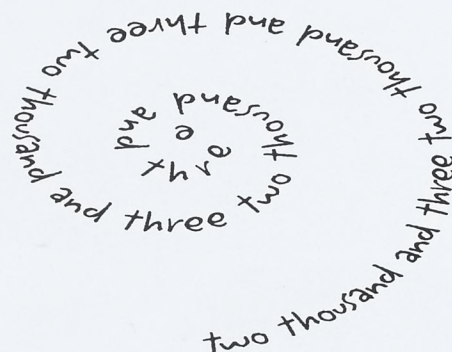 two thousand and three two thousand and three two thousand and three two thousand and three